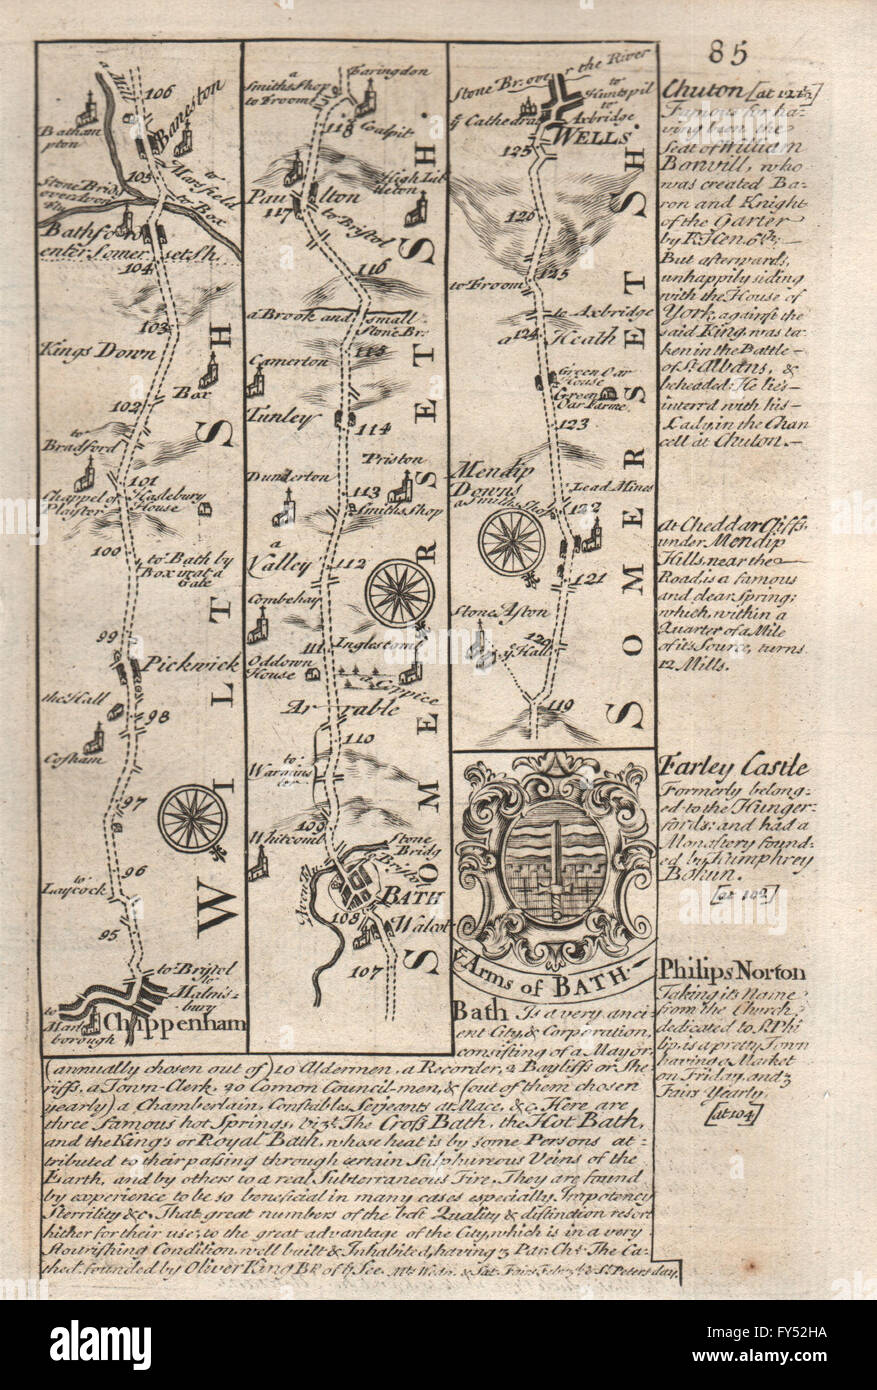 85
a Mill
106
Bathampton
Baneston
to Marsfield
to Box
105
Stone Bridg
Bathford
enter Somersetsh.
104
103
Kings Down
Box
102
to Bradford
101
Chappel of Playster
Haslebury House
100
to Bath by
Box
Gate
99
Pickwick
the Hall
98
Cosham
97
96
to Laycock
95
to Bristol
to Malmsbury
to Marlborough
Chippenham
WILTSH.
a Smiths Shop
to Froom
Faringdon
118
Colepit
Paulton
High Littleton
117
to Bristol
116
a Brook and small
Stone Br.
115
Camerton
Tunley
114
Dunderton
Priston
113
Smiths Shop
a Valley
112
Combehay
111
Inglescomb
Oddown House
a Coppice
Arrable
110
to Warminster
109
Whitcomb
Stone Bridg
to Bristol
BATH
108
Walcot
107
SOMERSETSH.
Stone Br. over the River
to Huntspil
to Axbridge
ye Cathedral
WELLS
125
126
125
to Froom
to Axbridge
124
a Heath
Green Oar House
Green Oar Farme
123
Mendip Downs
Lead Mines
a Smiths Shop
122
121
Stone Aston
120
ye Hall
119
SOMERSETSH.
ye Arms of BATH.
Chuton [at 121½]
Famous for ha-
ving been the
Seat of William
Bonvill, who
was created Ba-
ron and Knight
of the Garter
by K. Hen. 6th;
But afterwards,
unhappily siding
with the House of
York, against the
said King was ta-
ken in the Battle
of St. Albans, &
beheaded: He lies
interr'd with his
Lady, in the Chan
cell at Chuton.
At Cheddar Cliffs,
under Mendip
Hills, near the
Road, is a famous
and clear Spring;
which, within a
Quarter of a Mile
of its Source, turns
12 Mills.
Farley Castle
Formerly belong-
ed to the Hunger-
fords; and had a
Monastery found-
ed by Humphrey
Bohun.
[at 102]
Philips Norton
Taking its Name
from the Church,
dedicated to St. Phi
lip, is a pretty Town
having a Market
on Friday, and 3
Fairs Yearly
[at 104]
Bath Is a very anci
ent City, & Corporation,
consisting of a Mayor
(annually chosen out of) 10 Aldermen, a Recorder, 2 Bayliffs or She
riffs, a Town-Clerk, 20 Comon Council-men, & (out of them chosen
yearly) a Chamberlain, Constables, Serjeants at Mace, &c. Here are
three famous hot Springs, viz. The Cross Bath, the Hot Bath,
and the King's or Royal Bath, whose heat is by some Persons at=
tributed to their passing through certain Sulphureous Veins of the
Earth, and by others to a real Subterraneous Fire. They are found
by experience to be so beneficial in many cases especially Impotency
Sterrility &c. That great numbers of the best Quality & distinction resort
hither for their use, to the great advantage of the City, which is in a very
flourishing Condition, well built & Inhabited, having 3 Par. Chs. The Ca=
thed. founded by Oliver King Bp. of ye See. Mts. Wedn. & Sat. Fairs Feb. 3d. & St. Peters day.
alamy
Image ID: FY52HA
www.alamy.com